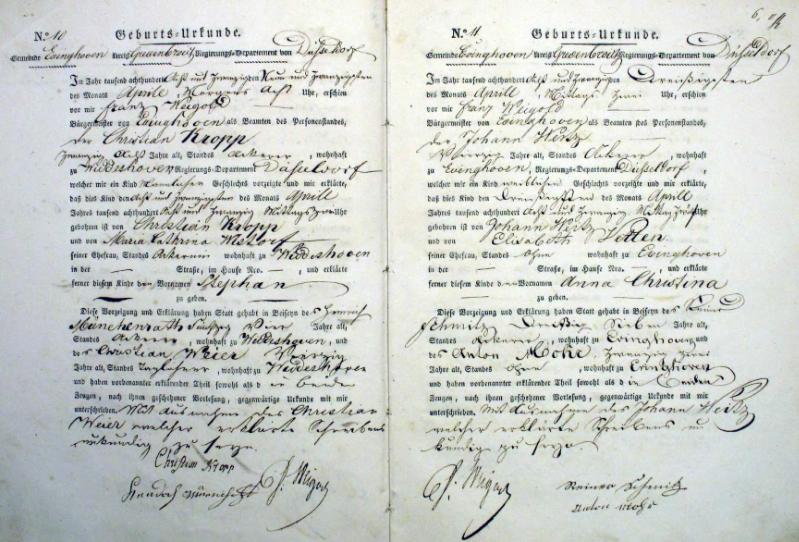 No. 10
Geburts-Urkunde.
Gemeinde Evinghoven Kreis Grevenbroich Regierungs-Departement von Düsseldorf
Im Jahr tausend achthundert Acht und zwanzigsten Neun und zwanzigsten
des Monats Aprill, Morgens Acht Uhr, erschien
vor mir Franz Weigold
Bürgermeister von Evinghoven als Beamten des Personenstandes,
der Christian Kropp
zwanzig Acht Jahre alt, Standes Ackerer, wohnhaft
zu Wiedeshoven Regierungs-Departement Düsseldorf
welcher mir ein Kind Männlichen Geschlechts vorzeigte und mir erklärte,
daß dies Kind den Acht und zwanzigsten des Monats Aprill
Jahres tausend achthundert Acht und zwanzig Mittags Uhr
gebohren ist von Christian Kropp
und von Maria Cathrina
seiner Ehefrau, Standes Ackerinn wohnhaft zu Wiedeshoven
in der — Straße, im Hause Nro. — , und erklärte
ferner diesem Kinde den Vornamen Stephan
zu geben.
Diese Vorzeigung und Erklärung haben Statt gehabt in Beiseyn des Henrich
Münchenrath Fünfzig Vier Jahre alt,
Standes Ackerer, wohnhaft zu Wiedeshoven, und
des Christian Weier Vierzig
Jahre alt, Standes Taglöhner, wohnhaft zu Wiedeshoven
und haben vorbenannter erklärender Theil sowohl als die beiden
Zeugen, nach ihnen geschehener Vorlesung, gegenwärtige Urkunde mit mir
unterschrieben. Mit Ausnahme des Christian
Weier welcher erklärte Schreibens
unkundig zu seyn.
Christian Kropp
F. Weigold
No. 11
Geburts-Urkunde.
Gemeinde Evinghoven Kreis Grevenbroich Regierungs-Departement von Düsseldorf
Im Jahr tausend achthundert Acht und zwanzig Dreißigsten
des Monats Aprill, Mittags zwei Uhr, erschien
vor mir Franz Weigold
Bürgermeister von Evinghoven als Beamten des Personenstandes,
der Johann Weitz
Vierzig Jahre alt, Standes Ackerer, wohnhaft
zu Evinghoven, Regierungs-Departement Düsseldorf,
welcher mir ein Kind weiblichen Geschlechts vorzeigte und mir erklärte,
daß dies Kind den Dreißigsten des Monats Aprill
Jahres tausend achthundert Acht und zwanzig Mittag Uhr
gebohren ist von Johann Weitz
und von Elisabeth
seiner Ehefrau, Standes ohne wohnhaft zu Evinghoven
in der — Straße, im Hause Nro. — , und erklärte
ferner diesem Kinde den Vornamen Anna Christina
zu geben.
Diese Vorzeigung und Erklärung haben Statt gehabt in Beiseyn des Reiner
Schmitz Dreißig Sieben Jahre alt,
Standes Ackerer, wohnhaft zu Evinghoven und
des Anton Mohr, zwanzig zwei
Jahre alt, Standes ohne, wohnhaft zu Evinghoven
und haben vorbenannter erklärender Theil sowohl als die beiden
Zeugen, nach ihnen geschehener Vorlesung, gegenwärtige Urkunde mit mir
unterschrieben. Mit Ausnahme des Johann Weitz
welcher erklärte Schreibens un
kundig zu seyn.
F. Weigold
Reiner Schmitz
Anton Mohr